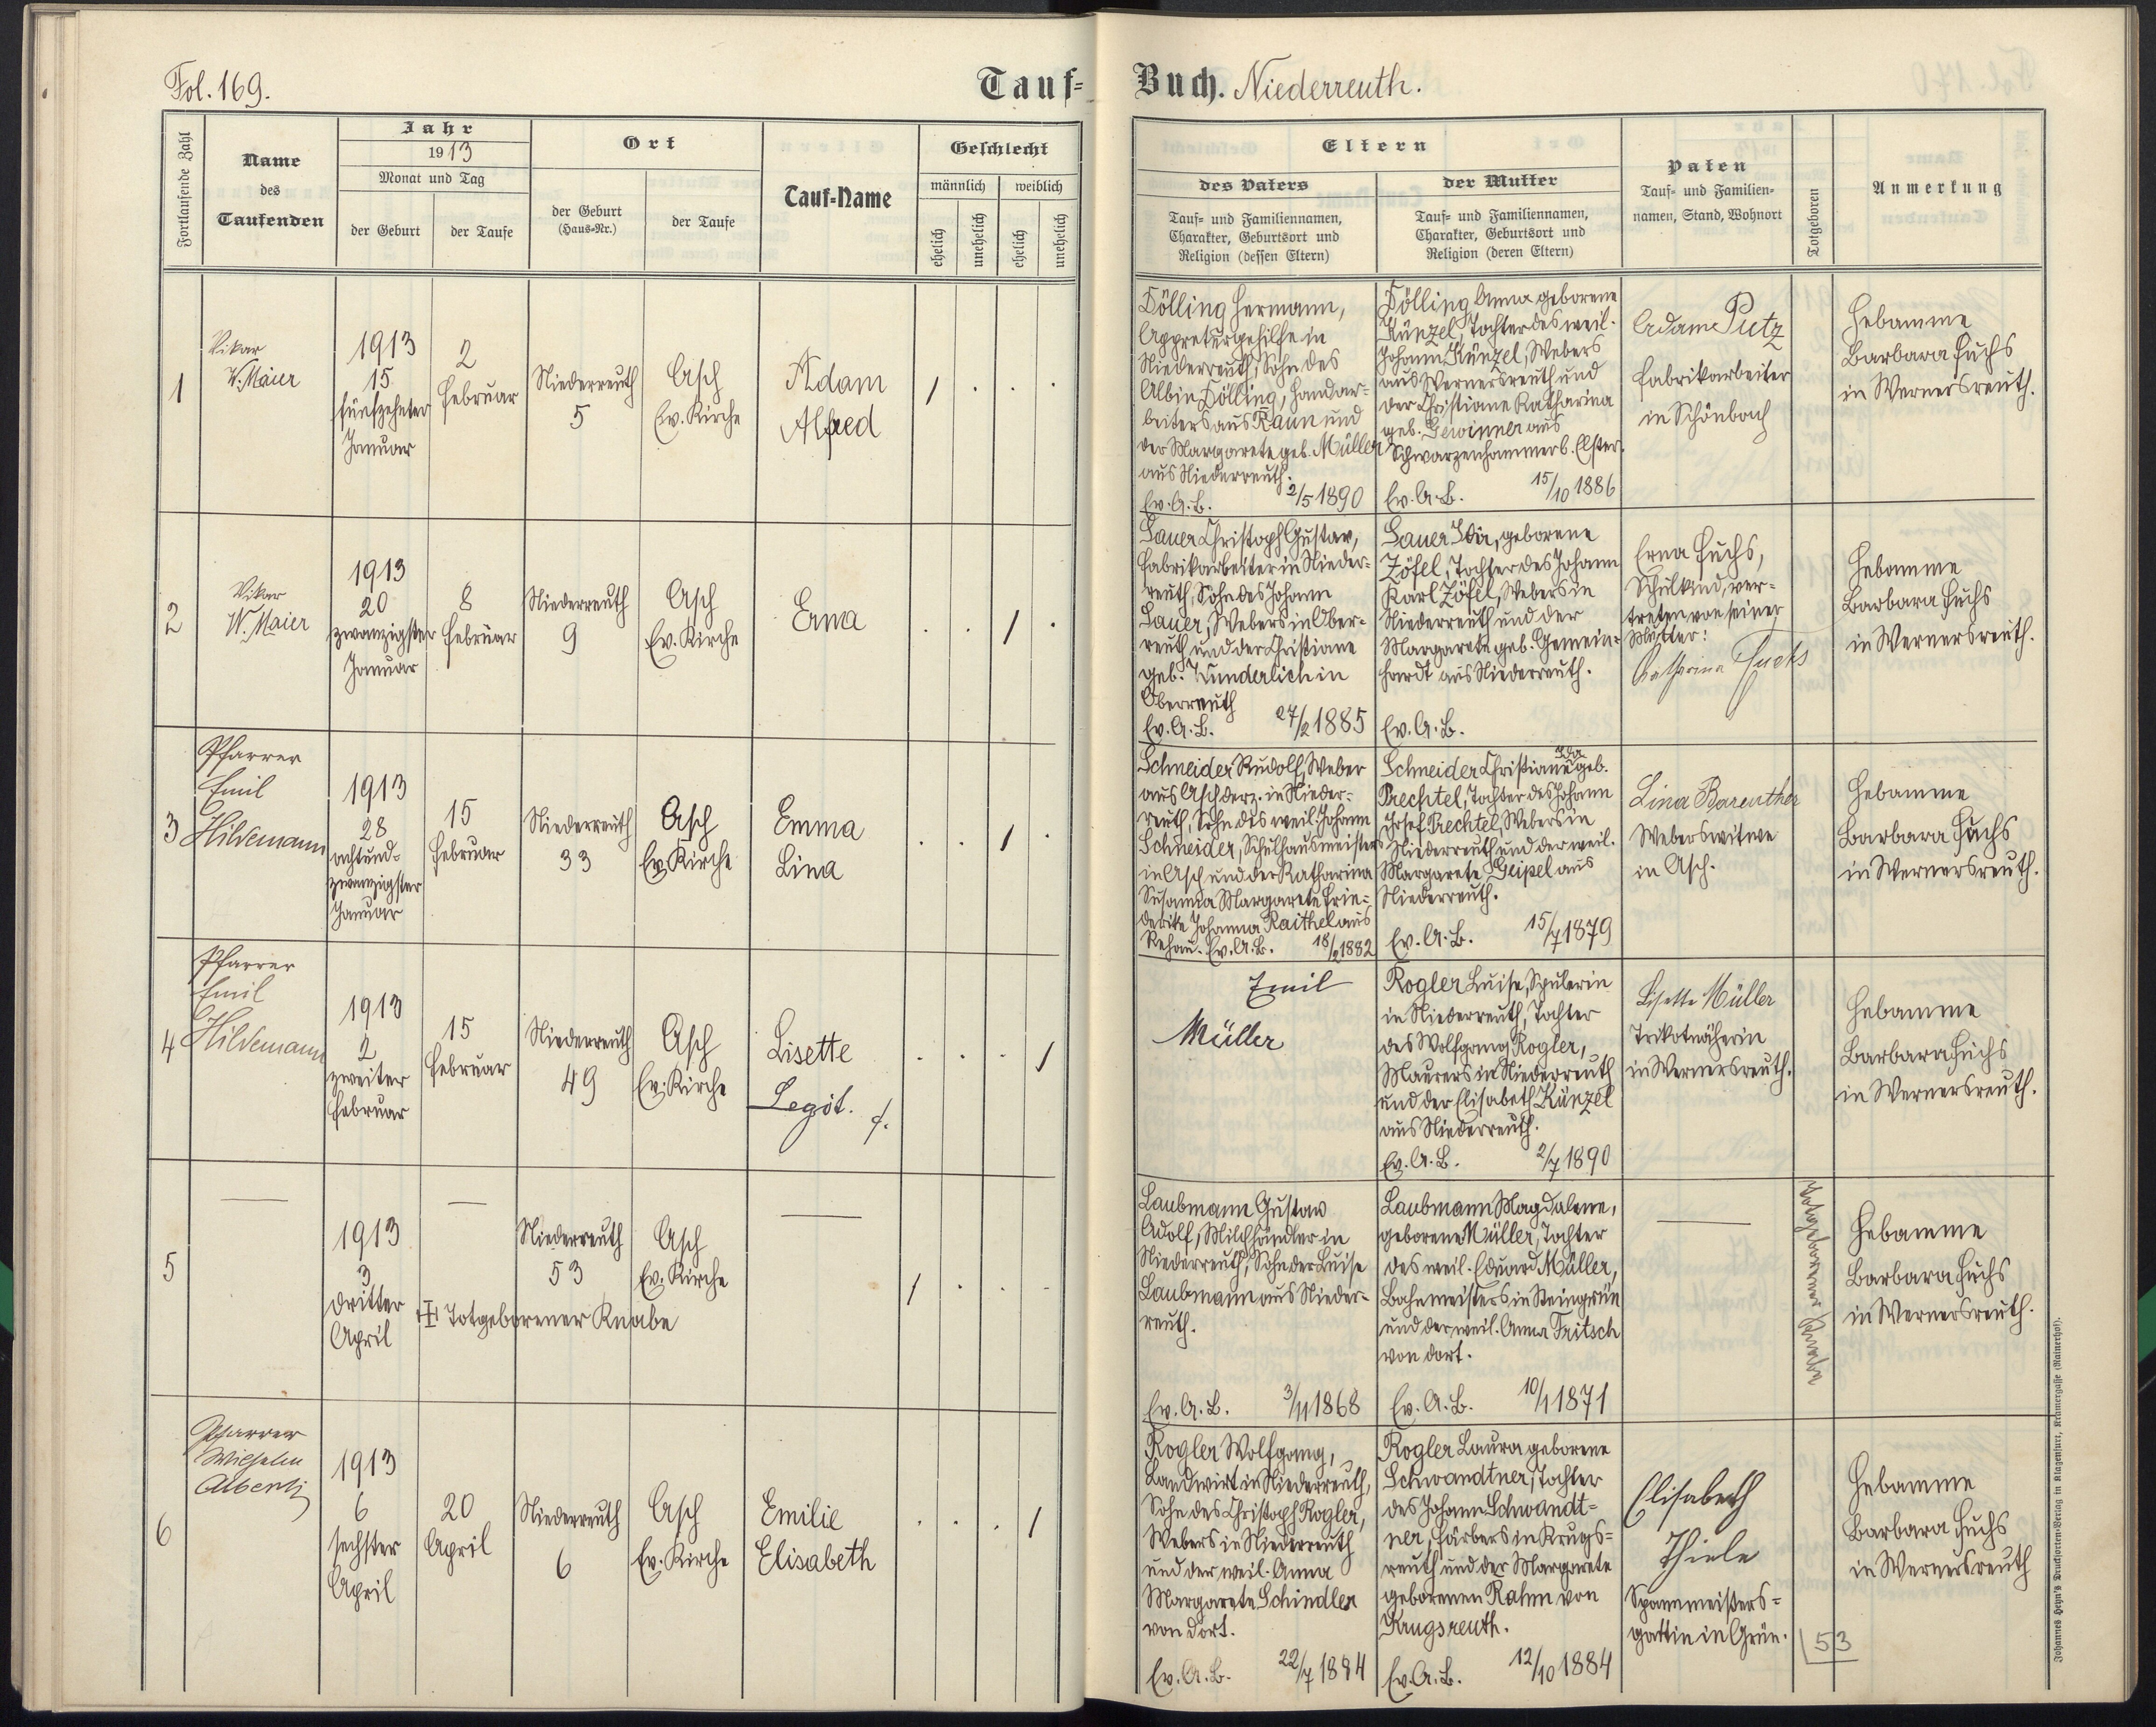 Fol. 169.
Tauf=
Buch. Niederreuth.
Fortlaufende Zahl
Name
des
Taufenden
Jahr
1913
Monat und Tag
der Geburt
der Taufe
Ort
der Geburt
(Haus=Nr.)
der Taufe
Tauf=Name
Geschlecht
männlich
weiblich
ehelich
unehelich
ehelich
unehelich
Eltern
des Vaters
Tauf= und Familiennamen,
Charakter, Geburtsort und
Religion (dessen Eltern)
der Mutter
Tauf= und Familiennamen,
Charakter, Geburtsort und
Religion (deren Eltern)
Paten
Tauf= und Familien=
namen, Stand, Wohnort
Totgeboren
Anmerkung
1
Vikar
W. Maier
1913
15
fünfzehnter
Januar
2
Februar
Niederreuth
5
Asch
Ev. Kirche
Adam
Alfred
1 . . .
Dölling Hermann,
Appreturgehilfe in
Niederreuth, Sohn des
Albin Dölling, Handar=
beiters aus Raun und
der Margarete geb. Müller
aus Niederreuth.
Ev. A. B. 2/5 1890
Dölling Anna geborene
Künzel, Tochter des weil.
Johann Künzel, Webers
aus Wernersreuth und
der Christiane Katharina
geb. Gewinner aus
Schwarzenhammer b. Elster.
Ev. A. B. 15/10 1886
Adam Putz
Fabrikarbeiter
in Schönbach
Hebamme
Barbara Fuchs
in Wernersreuth.
2
Vikar
W. Maier
1913
20
zwanzigster
Januar
8
Februar
Niederreuth
9
Asch
Ev. Kirche
Erna
. . 1 .
Sauer Christoph Gustav,
Fabrikarbeiter in Nieder=
reuth, Sohn des Johann
Sauer, Webers in Ober=
reuth und der Christiane
geb. Wunderlich in
Oberreuth
Ev. A. B. 27/2 1885
Sauer Ida, geborene
Zöfel, Tochter des Johann
Karl Zöfel, Webers in
Niederreuth und der
Margarete geb. Gemein=
hardt aus Niederreuth.
Ev. A. B.
Erna Fuchs,
Schulkind, ver=
treten von seiner
Mutter:
Katharina Fuchs
Hebamme
Barbara Fuchs
in Wernersreuth.
3
Pfarrer
Emil
Hildemann
1913
28
achtund=
zwanzigster
Januar
15
Februar
Niederreuth
33
Asch
Ev. Kirche
Emma
Lina
. . 1 .
Schneider Rudolf, Weber
aus Asch derz. in Nieder=
reuth, Sohn des weil. Johann
Schneider, Schulhausmeisters
in Asch und der Katharina
Susanna Margarete Frie=
derike Johanna Raithel aus
Rehau. Ev. A. B. 18/2 1882
Ida
Schneider Christiane geb.
Prechtel, Tochter des Johann
Josef Prechtel, Webers in
Niederreuth und der weil.
Margarete Geipel aus
Niederreuth.
Ev. A. B. 15/7 1879
Lina Bareuther
Weberswitwe
in Asch.
Hebamme
Barbara Fuchs
in Wernersreuth.
4
Pfarrer
Emil
Hildemann
1913
2
zweiter
Februar
15
Februar
Niederreuth
49
Asch
Ev. Kirche
Lisette
Legit.
. . . 1
Emil
Müller
Rogler Luise, Spulerin
in Niederreuth, Tochter
des Wolfgang Rogler,
Maurers in Niederreuth
und der Elisabeth Künzel
aus Niederreuth.
Ev. A. B. 2/7 1890
Lisette Müller
Trikotnäherin
in Wernersreuth.
Hebamme
Barbara Fuchs
in Wernersreuth.
5
1913
3
dritter
April
Niederreuth
53
Asch
Ev. Kirche
Totgeborener Knabe
1 . . .
Laubmann Gustav
Adolf, Milchhändler in
Niederreuth, Sohn der Luise
Laubmann aus Nieder=
reuth.
Ev. A. B. 3/11 1868
Laubmann Magdalene,
geborene Müller, Tochter
des weil. Eduard Müller,
Bahnmeisters in Steingrün
und der weil. Anna Fritsch
von dort.
Ev. A. B. 10/1 1871
Totgeborener Knabe
Hebamme
Barbara Fuchs
in Wernersreuth.
6
Pfarrer
Wilhelm
Alberti
1913
6
sechster
April
20
April
Niederreuth
6
Asch
Ev. Kirche
Emilie
Elisabeth
. . . 1
Rogler Wolfgang,
Landwirt in Niederreuth,
Sohn des Christoph Rogler,
Webers in Niederreuth
und der weil. Anna
Margarete Schindler
von dort.
Ev. A. B. 22/7 1894
Rogler Laura geborene
Schwandtner, Tochter
des Johann Schwandt=
ner, Färbers in Krugs=
reuth und der Margarete
geborenen Rahm von
Krugsreuth.
Ev. A. B. 12/10 1884
Elisabeth
Thiele
Spannmeisters=
gattin in Grün.
53
Hebamme
Barbara Fuchs
in Wernersreuth
Johannes Heyn's Drucksorten=Verlag in Klagenfurt, Kramergasse (Rainerhof).